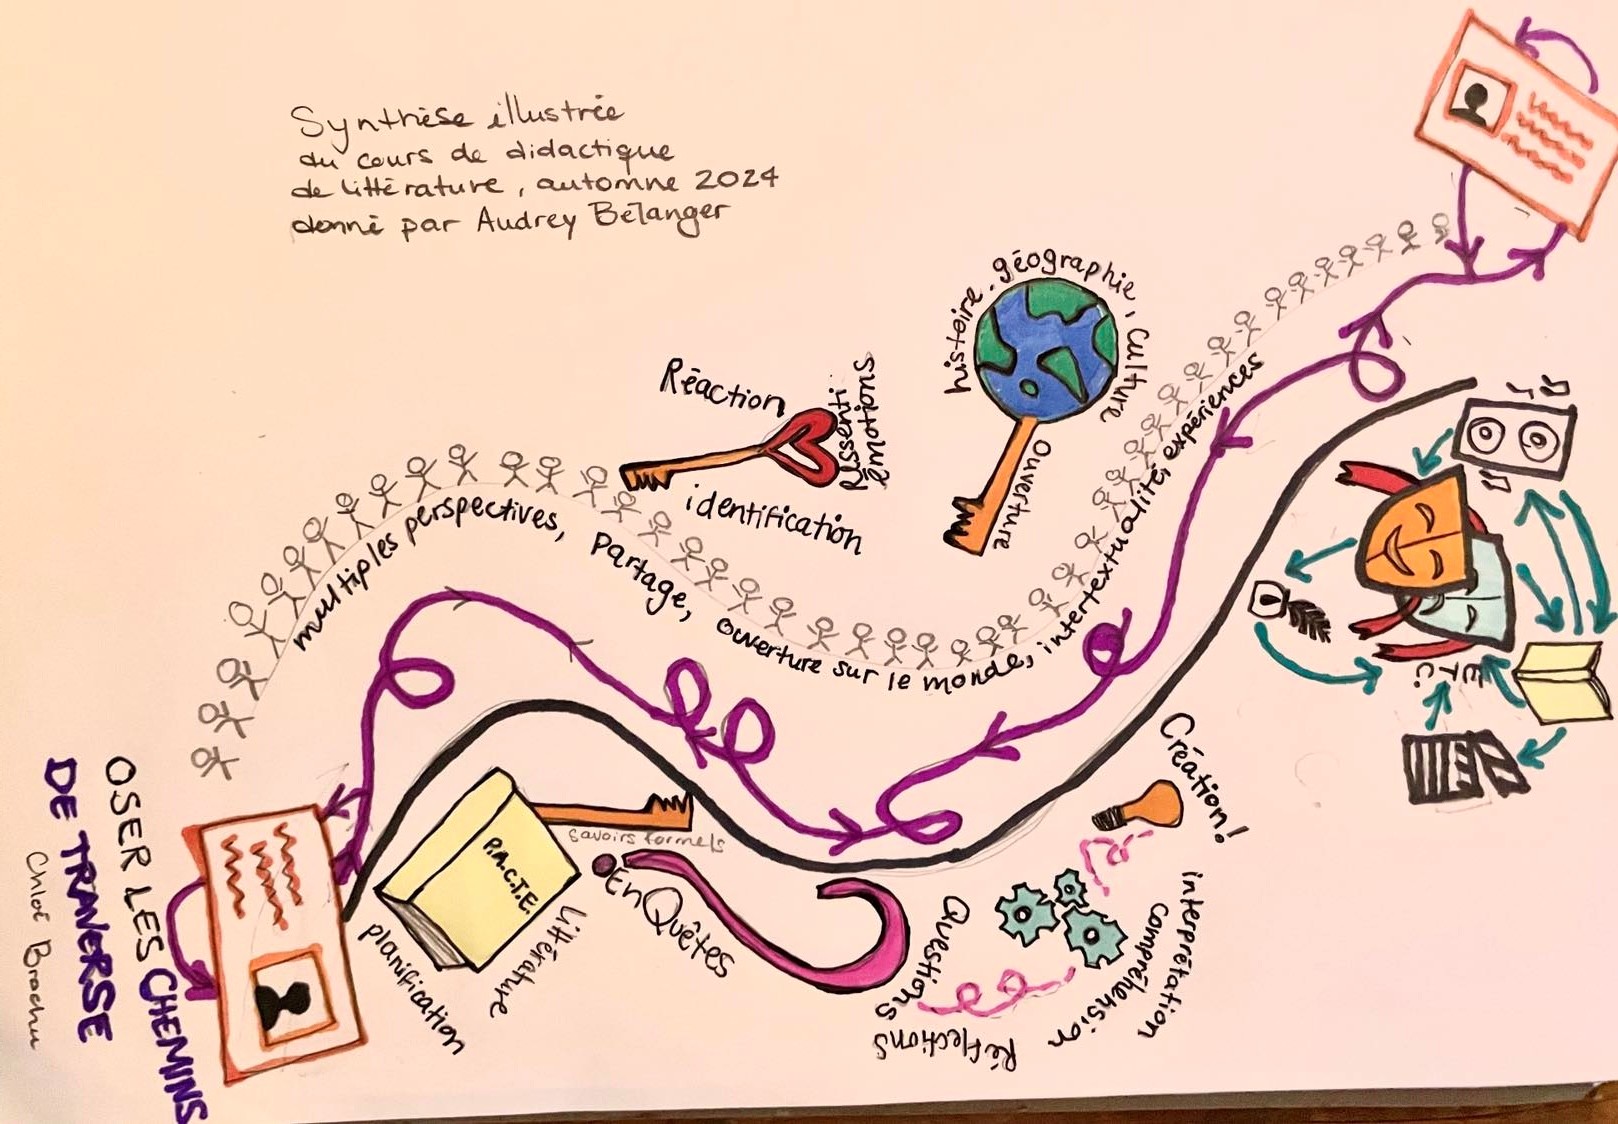 Synthèse illustrée
du cours de didactique
de littérature, automne 2024
donné par Audrey Bélanger
OSER LES CHEMINS
DE TRAVERSE
Chloé Brochu
multiples perspectives, Partage, ouverture sur le monde, intertextualité, expériences
Réaction
Ressenti
émotions
identification
histoire, géographie, culture
Ouverture
P.A.C.T.E.
savoirs formels
planification
littérature
EnQuêtes
Questions
Réflections
interprétation
compréhension
Création!
ETC.